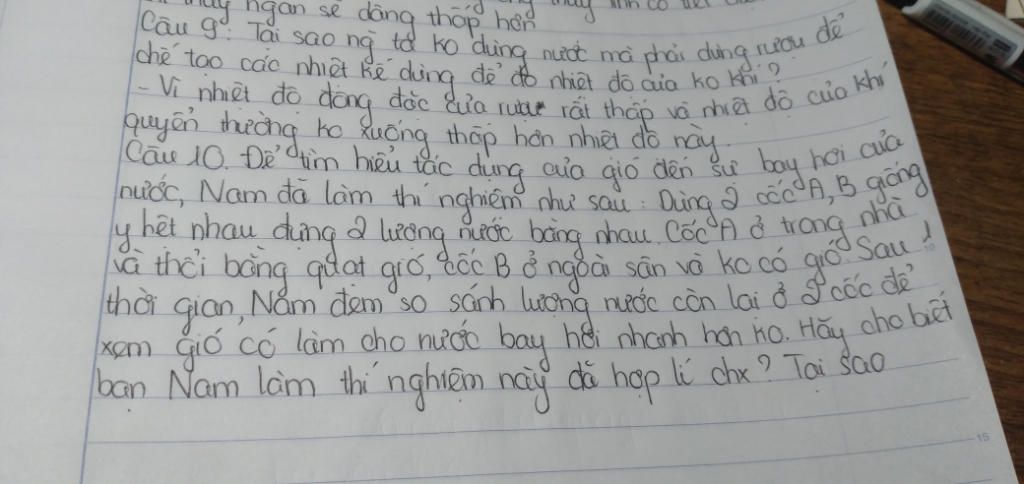 ngân sẽ dâng thấp hơn
Câu 9: Tại sao ng ta ko dùng nước mà phải dùng rượu để
chế tạo các nhiệt kế dùng để đo nhiệt độ của ko khí?
- Vì nhiệt độ đông đặc của rượu rất thấp và nhiệt độ của khí
quyển thường ko xuống thấp hơn nhiệt độ này.
Câu 10. Để tìm hiểu tác dụng của gió đến sự bay hơi của
nước, Nam đã làm thí nghiệm như sau: Dùng 2 cốc A, B giống
y hệt nhau đựng 2 lượng nước bằng nhau. Cốc A ở trong nhà
và thổi bằng quạt gió, cốc B ở ngoài sân và ko có gió. Sau 1
thời gian, Nam đem so sánh lượng nước còn lại ở 2 cốc để
xem gió có làm cho nước bay hơi nhanh hơn ko. Hãy cho biết
bạn Nam làm thí nghiệm này đã hợp lí chx? Tại sao